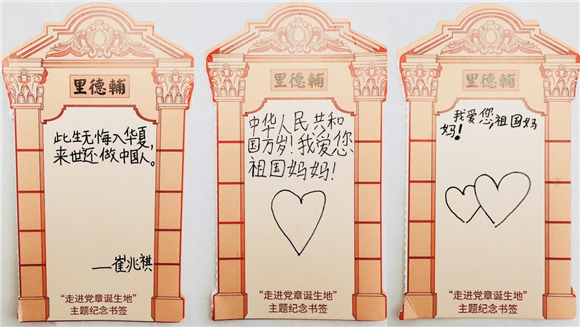 里德輔
此生无悔入华夏,
来世还做中国人。
——崔兆祺
“走进党章诞生地”
主题纪念书签
里德輔
中华人民共和
国万岁!我爱您
祖国妈妈!
“走进党章诞生地”
主题纪念书签
里德輔
我爱您,祖国妈
妈!
“走进党章诞生地”
主题纪念书签